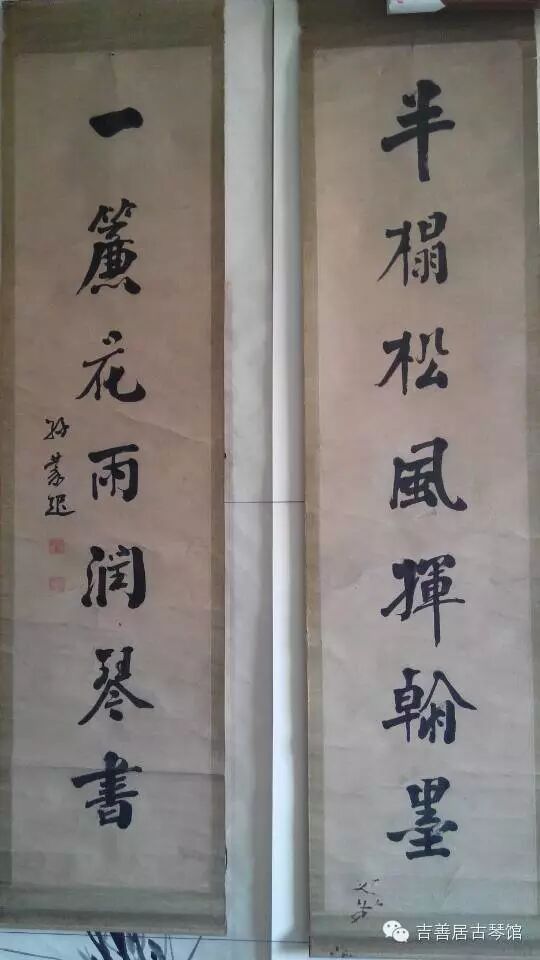 半榻松風揮翰墨
一簾花雨潤琴書
孫葆
吉善居古琴馆